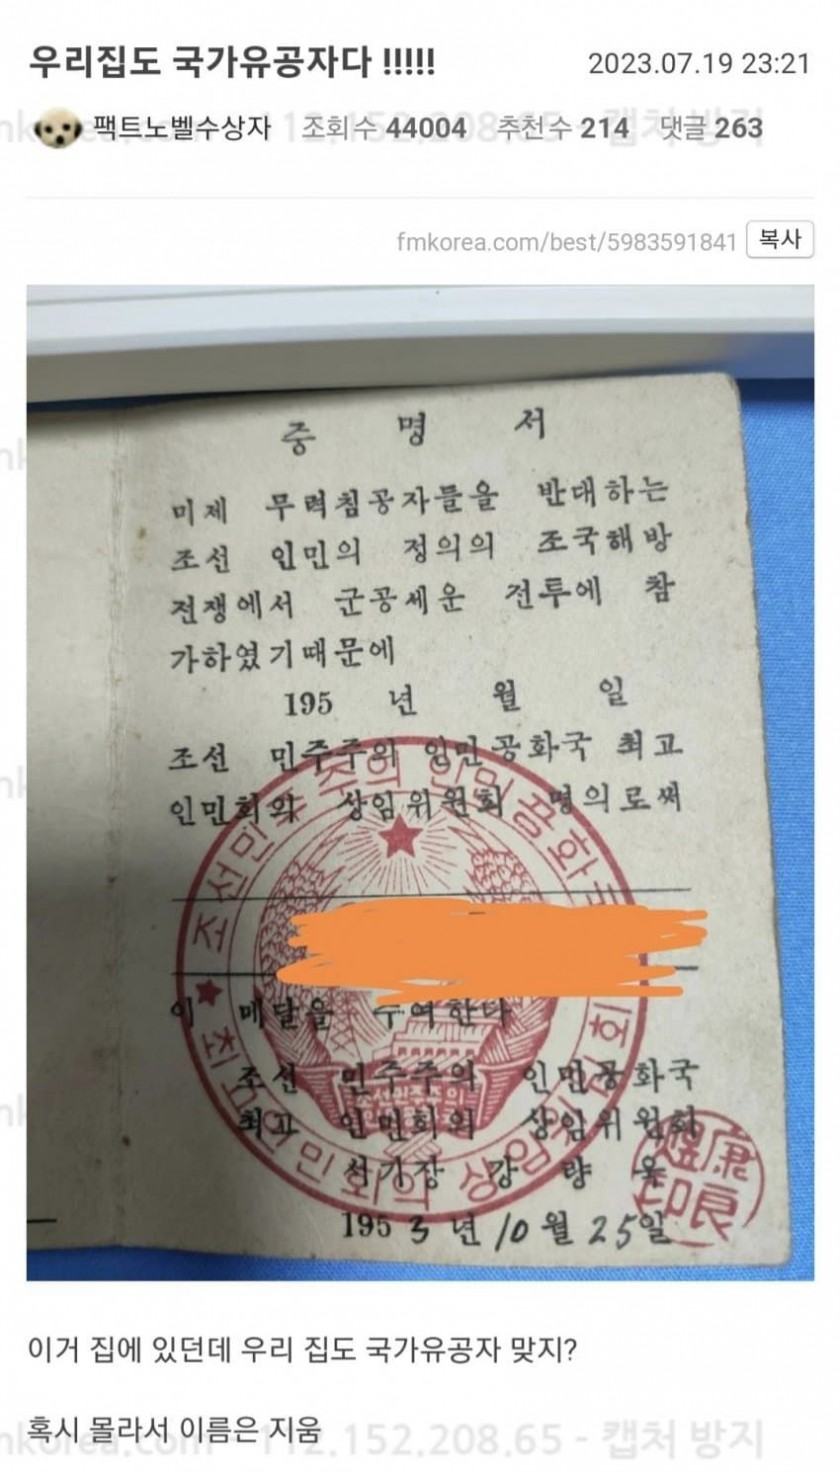 우리집도 국가유공자다 !!!!!
2023.07.19 23:21
팩트노벨수상자 조회 수 44004 추천 수 214 댓글 263
fmkorea.com/best/5983591841 복사
증 명 서
미제 무력침공자들을 반대하는
조선 인민의 정의의 조국해방
전쟁에서 군공세운 전투에 참
가하였기때문에
195 년 월 일
조선 민주주의 인민공화국 최고
인민회의 상임위원회 명의로써
이 메달을 수여한다
조선 민주주의 인민공화국
최고 인민회의 상임위원회
서기장 강 량 욱
1953년 10월 25일
조선민주주의 인민공화국
최고인민회의 상임위원회
이거 집에 있던데 우리 집도 국가유공자 맞지?
혹시 몰라서 이름은 지움
112.152.208.65 - 캡처 방지